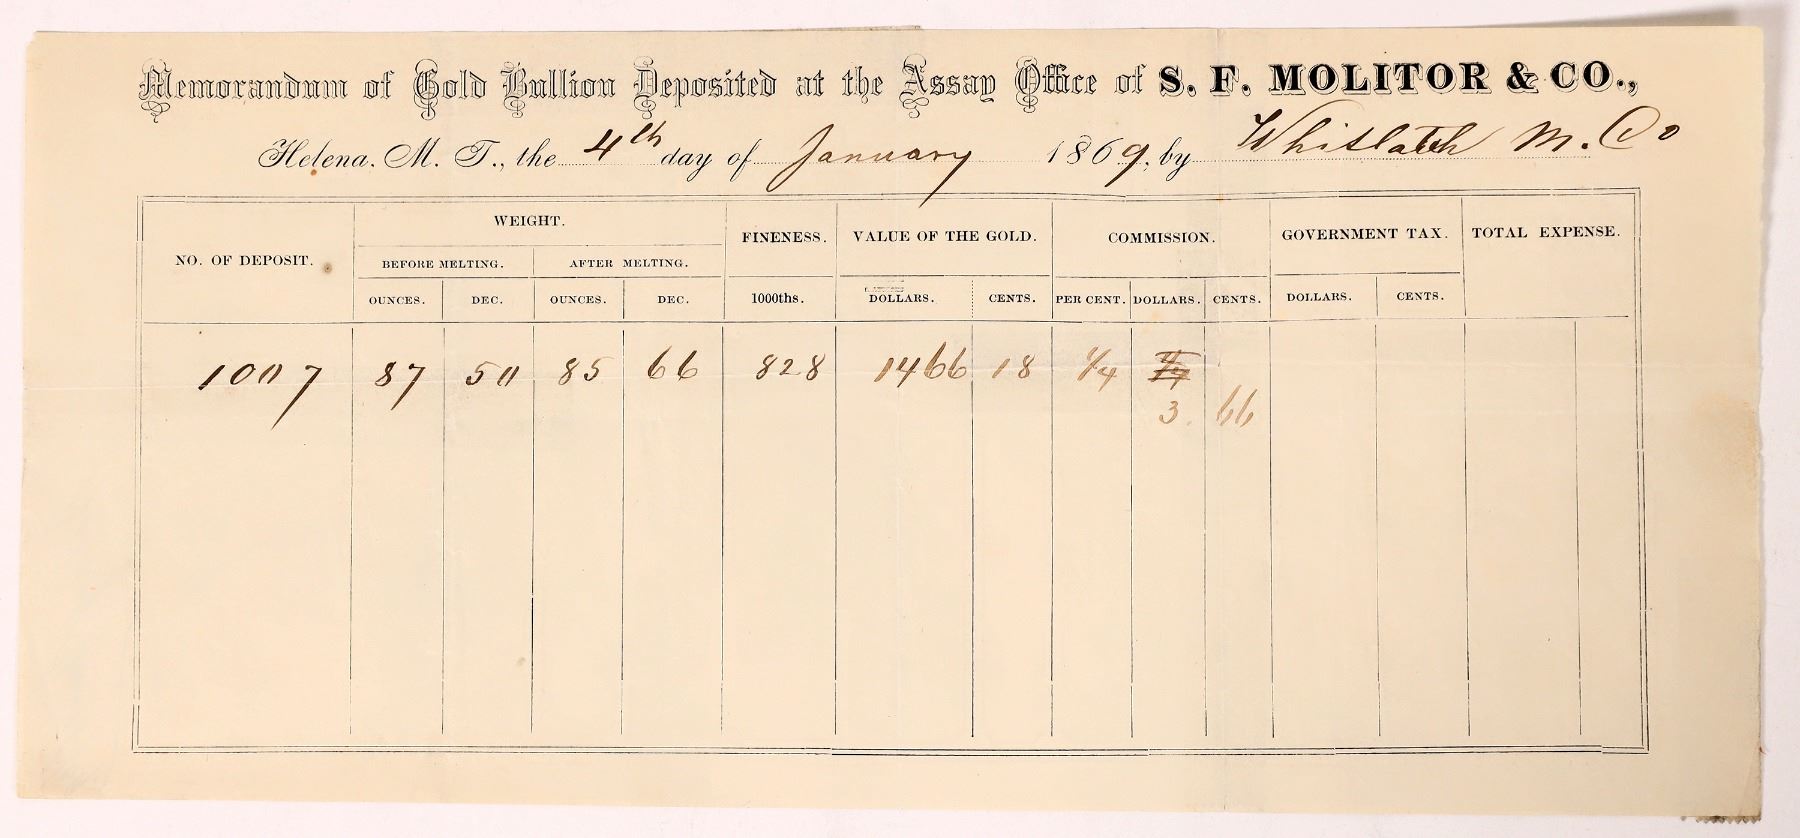 Memorandum of Gold Bullion Deposited at the Assay Office of S. F. MOLITOR & CO.,
Helena, M. T., the 4th day of January 1869, by Whitlatch M. Co
NO. OF DEPOSIT. WEIGHT. FINENESS. VALUE OF THE GOLD. COMMISSION. GOVERNMENT TAX. TOTAL EXPENSE.
BEFORE MELTING. AFTER MELTING.
OUNCES. DEC. OUNCES. DEC. 1000ths. DOLLARS. CENTS. PER CENT. DOLLARS. CENTS. DOLLARS. CENTS.
1007 87 50 85 66 828 1466 18 1/4 1/4
3. 66